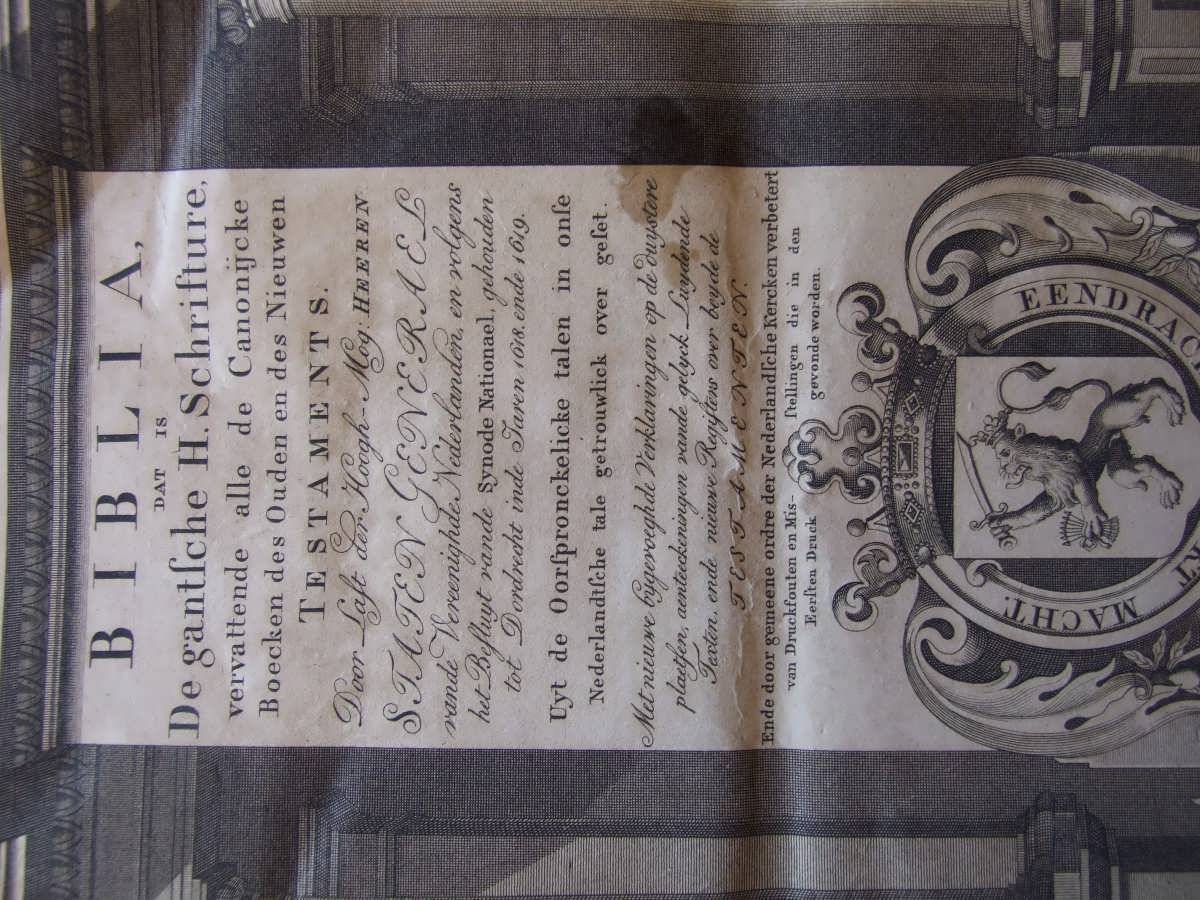 BIBLIA,
DAT IS
De gantſche H. Schrifture,
vervattende alle de Canonijcke
Boecken des Ouden en des Nieuwen
TESTAMENTS.
Door Laſt der Hoogh-Mog: HEEREN
STATEN GENERAEL
vande Vereenighde Nederlanden, en volgens
het Beſluyt vande Synode Nationael, gehouden
tot Dordrecht inde Jaren 1618. ende 1619.
Uyt de Oorſpronckelicke talen in onſe
Nederlandtſche tale getrouwlick over geſet.
Met nieuwe bygevoeghde Verklaringen op de duystere
plaetſen, aenteeckeningen vande gelyck Luydende
Texten, ende nieuwe Regiſters over beyde de
TESTAMENTEN.
Ende door gemeene ordre der Nederlandſche Kercken verbetert
van Druckfouten en Miſ- ſtellingen die in den
Eerſten Druck gevonde worden.
EENDRAC ET
MACHT.